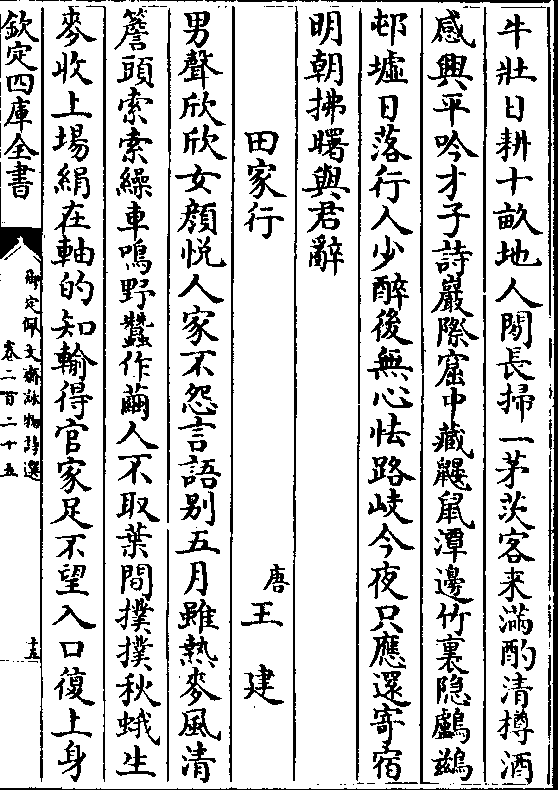 牛壯日耕十畝地人閒長掃一茅茨客来滿酌清樽酒
感興平吟才子詩巖際窟中藏鼴鼠潭邊竹裏隐鸕鷀
邨墟日落行人少醉後無心怯路岐今夜只應還寄宿
明朝拂曙與君辭
田家行
唐王建
男聲欣欣女顔悅人家不怨言語别五月雖熱麥風清
簷頭索索繰車鳴野蠶作繭人不取葉間撲撲秋蛾生
麥收上場絹在軸的知輸得官家足不望入口復上身
欽定四庫全書
御定佩文齋詠物詩選
卷二百二十五
十五